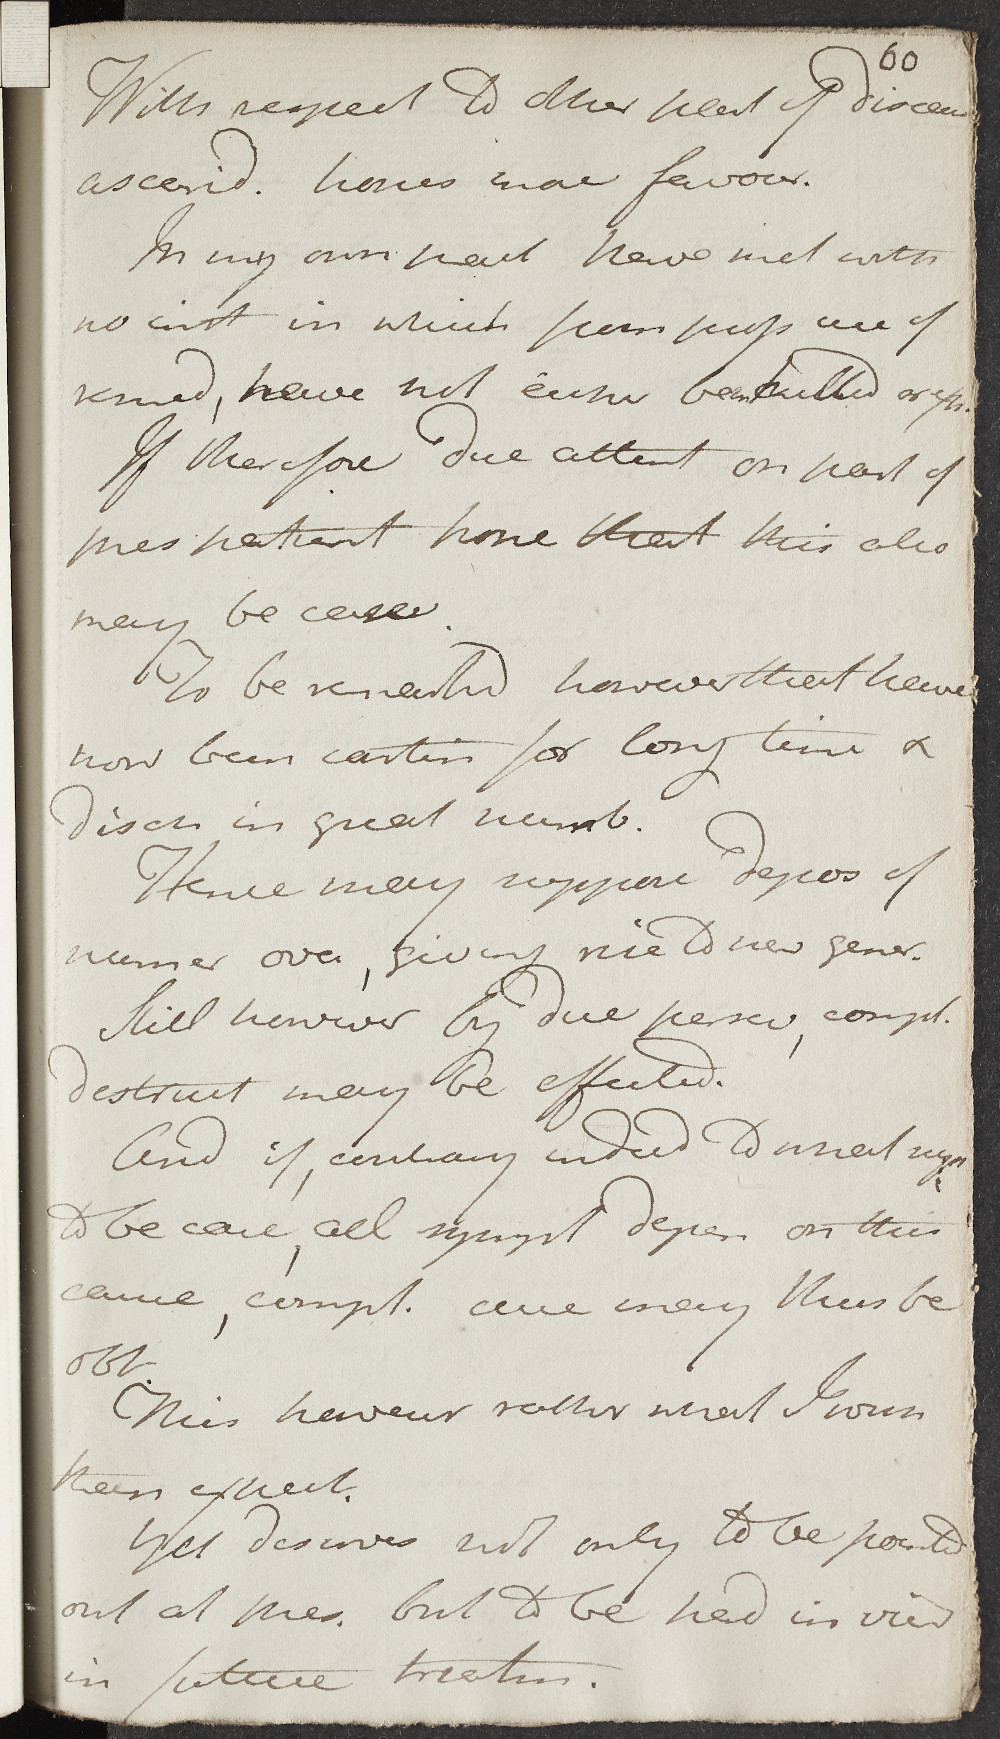 60
With respect to other part of diseas
ascarid. hopes more favour.
In my own pract have met with
no inst in which from purgs use of
remed, have not either been killed or exp.
If therefore due attent on part of
pres patient hope that this also
may be case.
To be remarkd however that have
now been exist in for long time &
disch in great numb.
Hence may suppose depos of
numer ova, giving rise to new gener.
Still however by due persev, compl.
destruct may be effected.
And if, contrary indeed to what supp
to be case, all sympt depen on this
cause, compl. cure may thus be
obt.
This however rather what I wish
than expect.
Yet deserves not only to be pointd
out at pres. but to be had in view
in future treatm.